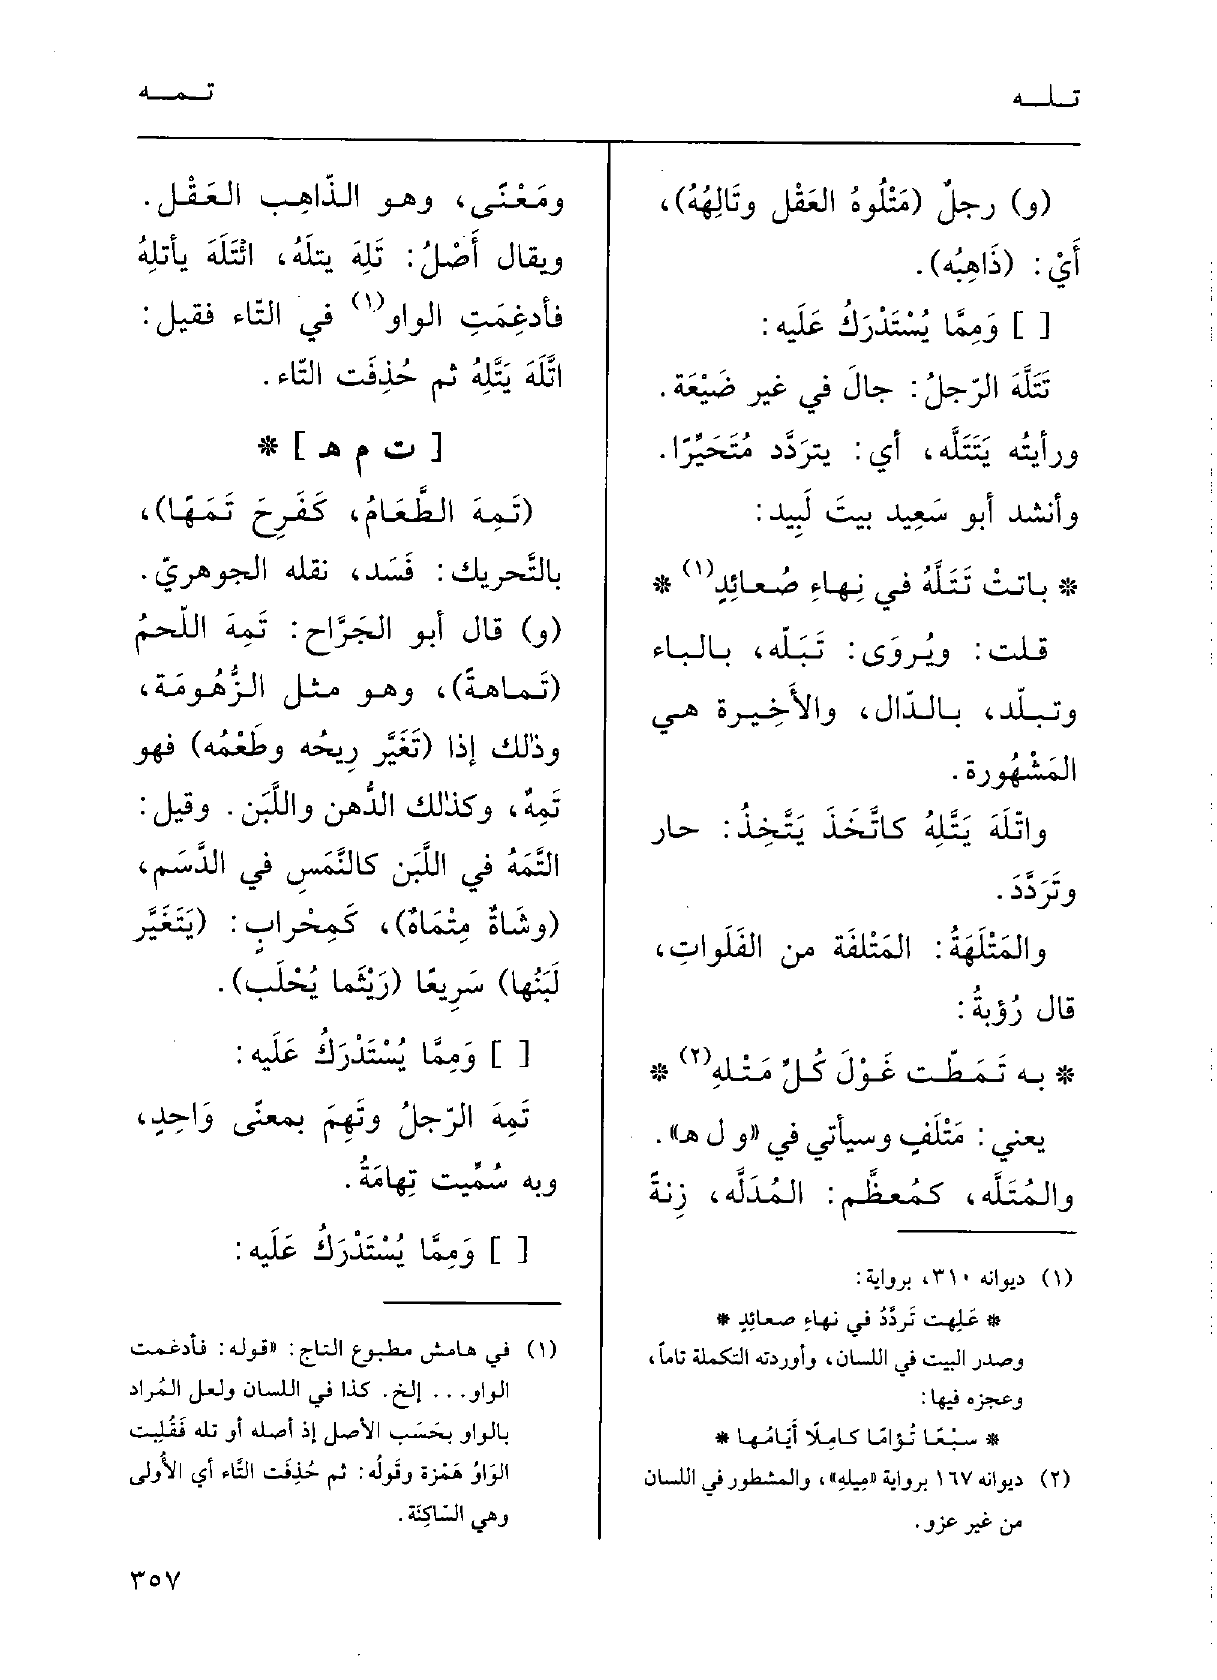 تـلـه
تـمـه
(و) رجلٌ (مَتْلُوهُ العَقْل وتَالِهُهُ)،
أَيْ: (ذَاهِبُه).
[ ] وَمِمَّا يُسْتَدْرَكُ عَلَيه:
تَتَلَّهَ الرّجلُ: جالَ في غير ضَيْعَة.
ورأيتُه يَتَتَلَّه، أي: يتردَّد مُتَحَيِّرًا.
وأنشد أبو سَعِيد بيتَ لَبِيد:
* باتتْ تَتَلَّهُ في نِهاءِ صُعائِدٍ(١) *
قلت: ويُروَى: تَبَلّه، بالباء
وتبلّد، بالدّال، والأخيرة هي
المَشْهُورة.
واتّلَهَ يَتَّلِهُ كاتَّخَذَ يَتَّخِذُ: حار
وتَرَدَّدَ.
والمَتْلَهَةُ: المَتْلفَة من الفَلَواتِ،
قال رُؤبةُ:
* به تَمَطّت غَوْلَ كُلِّ مَتْلهِ(٢) *
يعني: مَتْلَفٍ وسيأتي في «و ل هـ».
والمُتَلَّه، كمُعظَّم: المُدَلَّه، زِنةً
(١) ديوانه ٣١٠، برواية:
* عَلِهت تَردَّدُ في نهاءِ صعائدٍ *
وصدر البيت في اللسان، وأوردته التكملة تاماً،
وعجزه فيها:
* سبْعًا تُؤامًا كاملًا أَيَامُها *
(٢) ديوانه ١٦٧ برواية «مِيلهِ»، والمشطور في اللسان
من غير عزو.
ومَعْنًى، وهو الذّاهِب العَقْل.
ويقال أَصْلُ: تَلِهَ يتلَهُ، ائْتَلَهَ يأتلِهُ
فأدغِمَتِ الواو(١) في التّاء فقيل:
اتَّلَهَ يَتَّلِهُ ثم حُذِفَت التّاء.
[ ت م هـ ] *
(تَمِهَ الطَّعَامُ، كَفَرِحَ تَمَهًا)،
بالتَّحريك: فَسَد، نقله الجوهريّ.
(و) قال أبو الجَرَّاح: تَمِهَ اللّحمُ
(تَماهةً)، وهو مثل الزُّهُومَة،
وذٰلك إذا (تَغَيَّر رِيحُه وطَعْمُه) فهو
تَمِهٌ، وكذٰلك الدُّهن واللَّبَن. وقيل:
التَّمَهُ في اللَّبَن كالنَّمَسِ في الدَّسَم،
(وشَاةٌ مِتْمَاهٌ)، كَمِحْرابٍ: (يَتَغَيَّر
لَبَنُها) سَرِيعًا (رَيْثَما يُحْلَب).
[ ] وَمِمَّا يُسْتَدْرَكُ عَلَيه:
تَمِهَ الرّجلُ وتَهِمَ بمعنًى وَاحِدٍ،
وبه سُمِّيت تِهامَةُ.
[ ] وَمِمَّا يُسْتَدْرَكُ عَلَيه:
(١) في هامش مطبوع التاج: «قوله: فأدغمت
الواو... إلخ. كذا في اللسان ولعل المُراد
بالواو بحَسَب الأصل إذ أصله أو تله فَقُلِبت
الوَاوُ هَمْزة وقولُه: ثم حُذِفَت التَّاء أي الأُولى
وهي السّاكِنَة.
٣٥٧